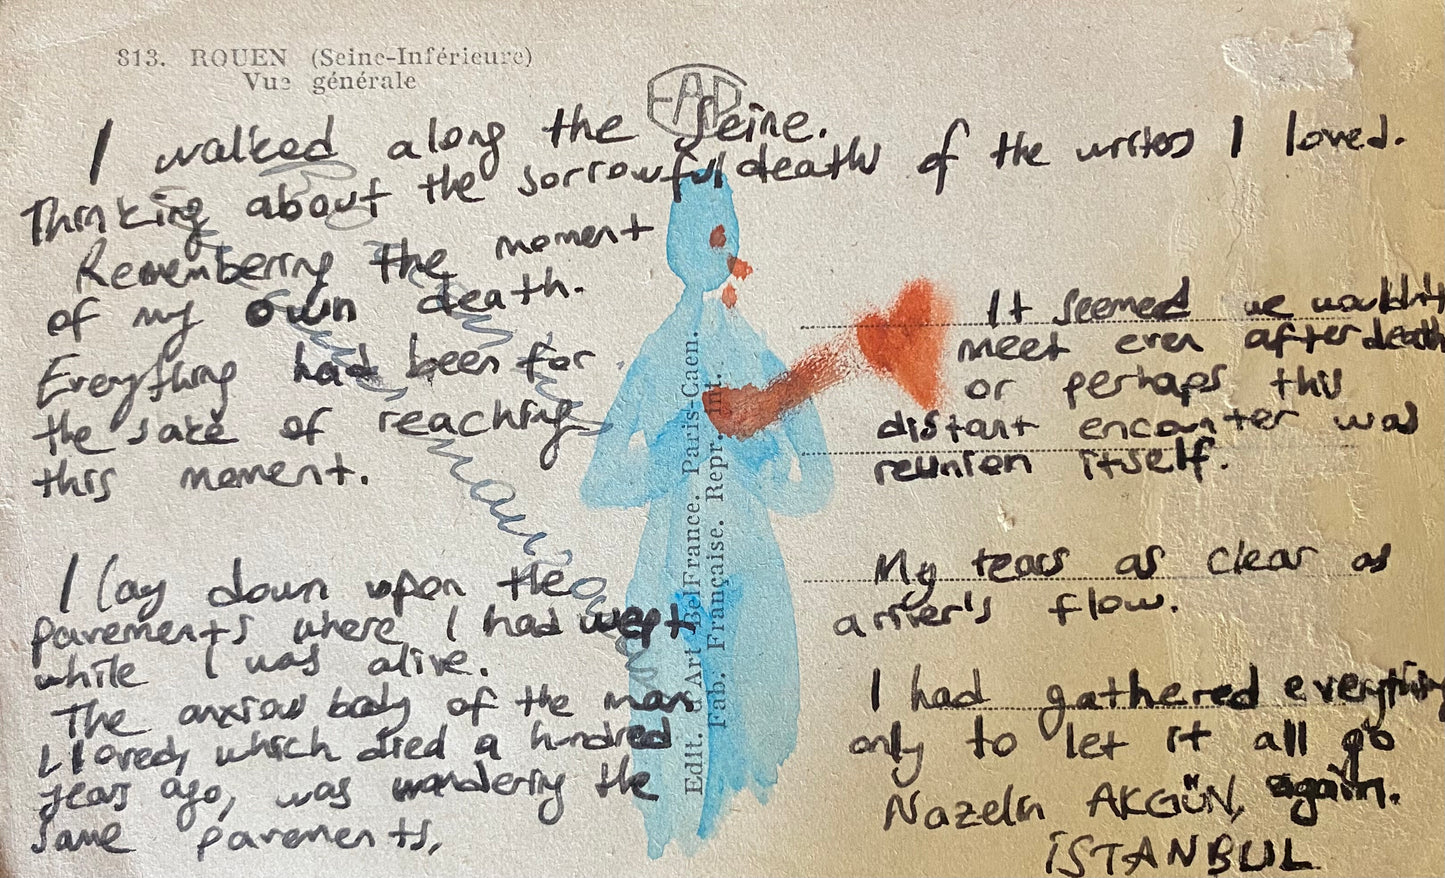 813. ROUEN (Seine-Inférieure)
Vue générale
EAD
I walked along the Seine.
Thinking about the sorrowful deaths of the writers I loved.
Remembering the moment
of my own death.
Everything had been for
the sake of reaching
this moment.
I lay down upon the
pavements where I had wept
while I was alive.
The anxious body of the man
I loved, which died a hundred
years ago, was wandering the
same pavements,
Edit. d'Art BelFrance. Paris-Caen.
Fab. Française. Repr. Int.
It seemed we wouldn't
meet even after death
or perhaps this
distant encounter was
reunion itself.
My tears as clear as
a river's flow.
I had gathered everything
only to let it all go
again.
Nazeln AKGÜN,
İSTANBUL